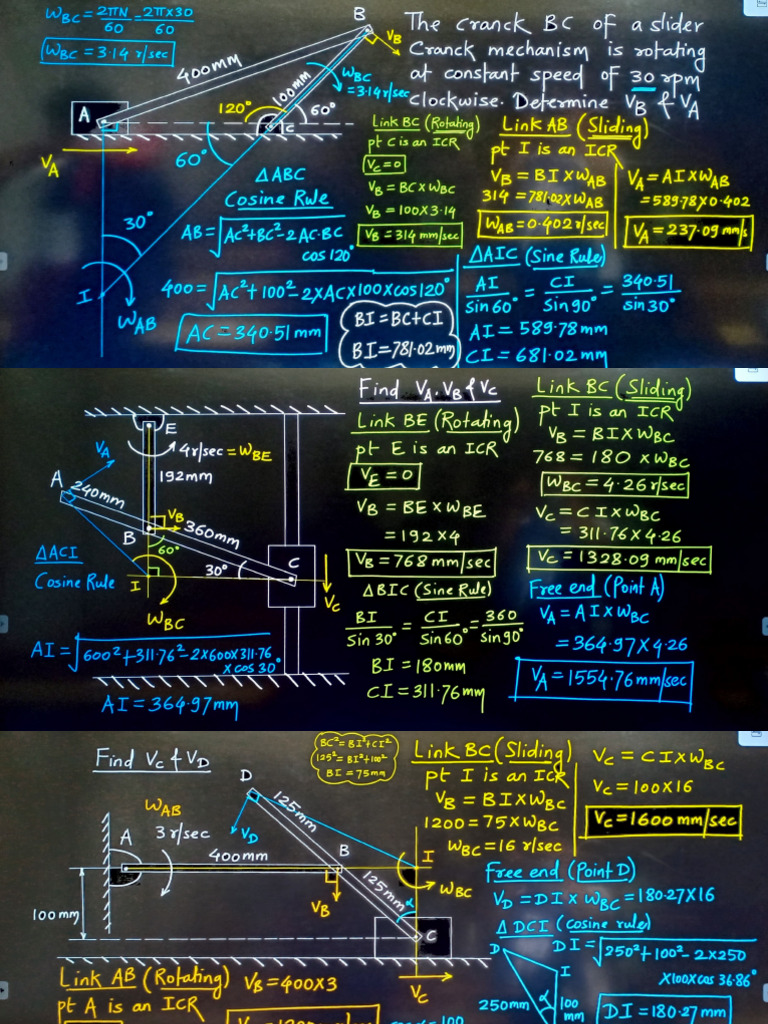 ω_BC = 2πN/60 = 2π×30/60
ω_BC = 3.14 r/sec
B
V_B
400mm
100mm
ω_BC
=3.14 r/sec
A
120°
60°
C
V_A
60°
30°
I
ω_AB
The cranck BC of a slider
Cranck mechanism is rotating
at constant speed of 30 rpm
clockwise. Determine V_B & V_A
△ABC
Cosine Rule
AB = √AC²+BC²-2AC·BC
cos120°
400 = √AC²+100²-2×AC×100×cos120°
AC = 340.51 mm
Link BC (Rotating)
pt C is an ICR
V_C = 0
V_B = BC×ω_BC
V_B = 100×3.14
V_B = 314 mm/sec
Link AB (Sliding)
pt I is an ICR
V_B = BI×ω_AB
314 = 781.02×ω_AB
ω_AB = 0.402 r/sec
V_A = AI×ω_AB
=589.78×0.402
V_A = 237.09 mm/s
△AIC (Sine Rule)
AI/sin60° = CI/sin90° = 340.51/sin30°
AI = 589.78mm
CI = 681.02mm
BI = BC+CI
BI = 781.02mm
E
4r/sec = ω_BE
192mm
V_A
A
240mm
V_B
B
360mm
60°
30°
C
I
V_C
ω_BC
△ACI
Cosine Rule
AI = √600²+311.76²-2×600×311.76
×cos30°
AI = 364.97mm
Find V_A, V_B & V_C
Link BE (Rotating)
pt E is an ICR
V_E = 0
V_B = BE×ω_BE
= 192×4
V_B = 768 mm/sec
△BIC (Sine Rule)
BI/Sin30° = CI/Sin60° = 360/sin90°
BI = 180mm
CI = 311.76mm
Link BC (Sliding)
pt I is an ICR
V_B = BI×ω_BC
768 = 180×ω_BC
ω_BC = 4.26r/sec
V_C = CI×ω_BC
= 311.76×4.26
V_C = 1328.09 mm/sec
Free end (Point A)
V_A = AI×ω_BC
= 364.97×4.26
V_A = 1554.76mm/sec
Find V_C & V_D
BC² = BI²+CI²
125² = BI²+100²
BI = 75mm
D
125mm
V_D
ω_AB
3 r/sec
A
400mm
B
I
ω_BC
V_B
125mm
α
C
100mm
V_C
Link AB (Rotating)
pt A is an ICR
V_B = 400×3
Link BC (Sliding)
pt I is an ICR
V_B = BI×ω_BC
1200 = 75×ω_BC
ω_BC = 16 r/sec
V_C = CI×ω_BC
V_C = 100×16
V_C = 1600 mm/sec
Free end (Point D)
V_D = DI × ω_BC = 180.27×16
△DCI (cosine rule)
DI = √250²+100²-2×250
×100×cos36.86°
D
I
250mm
α
100
mm
DI = 180.27mm